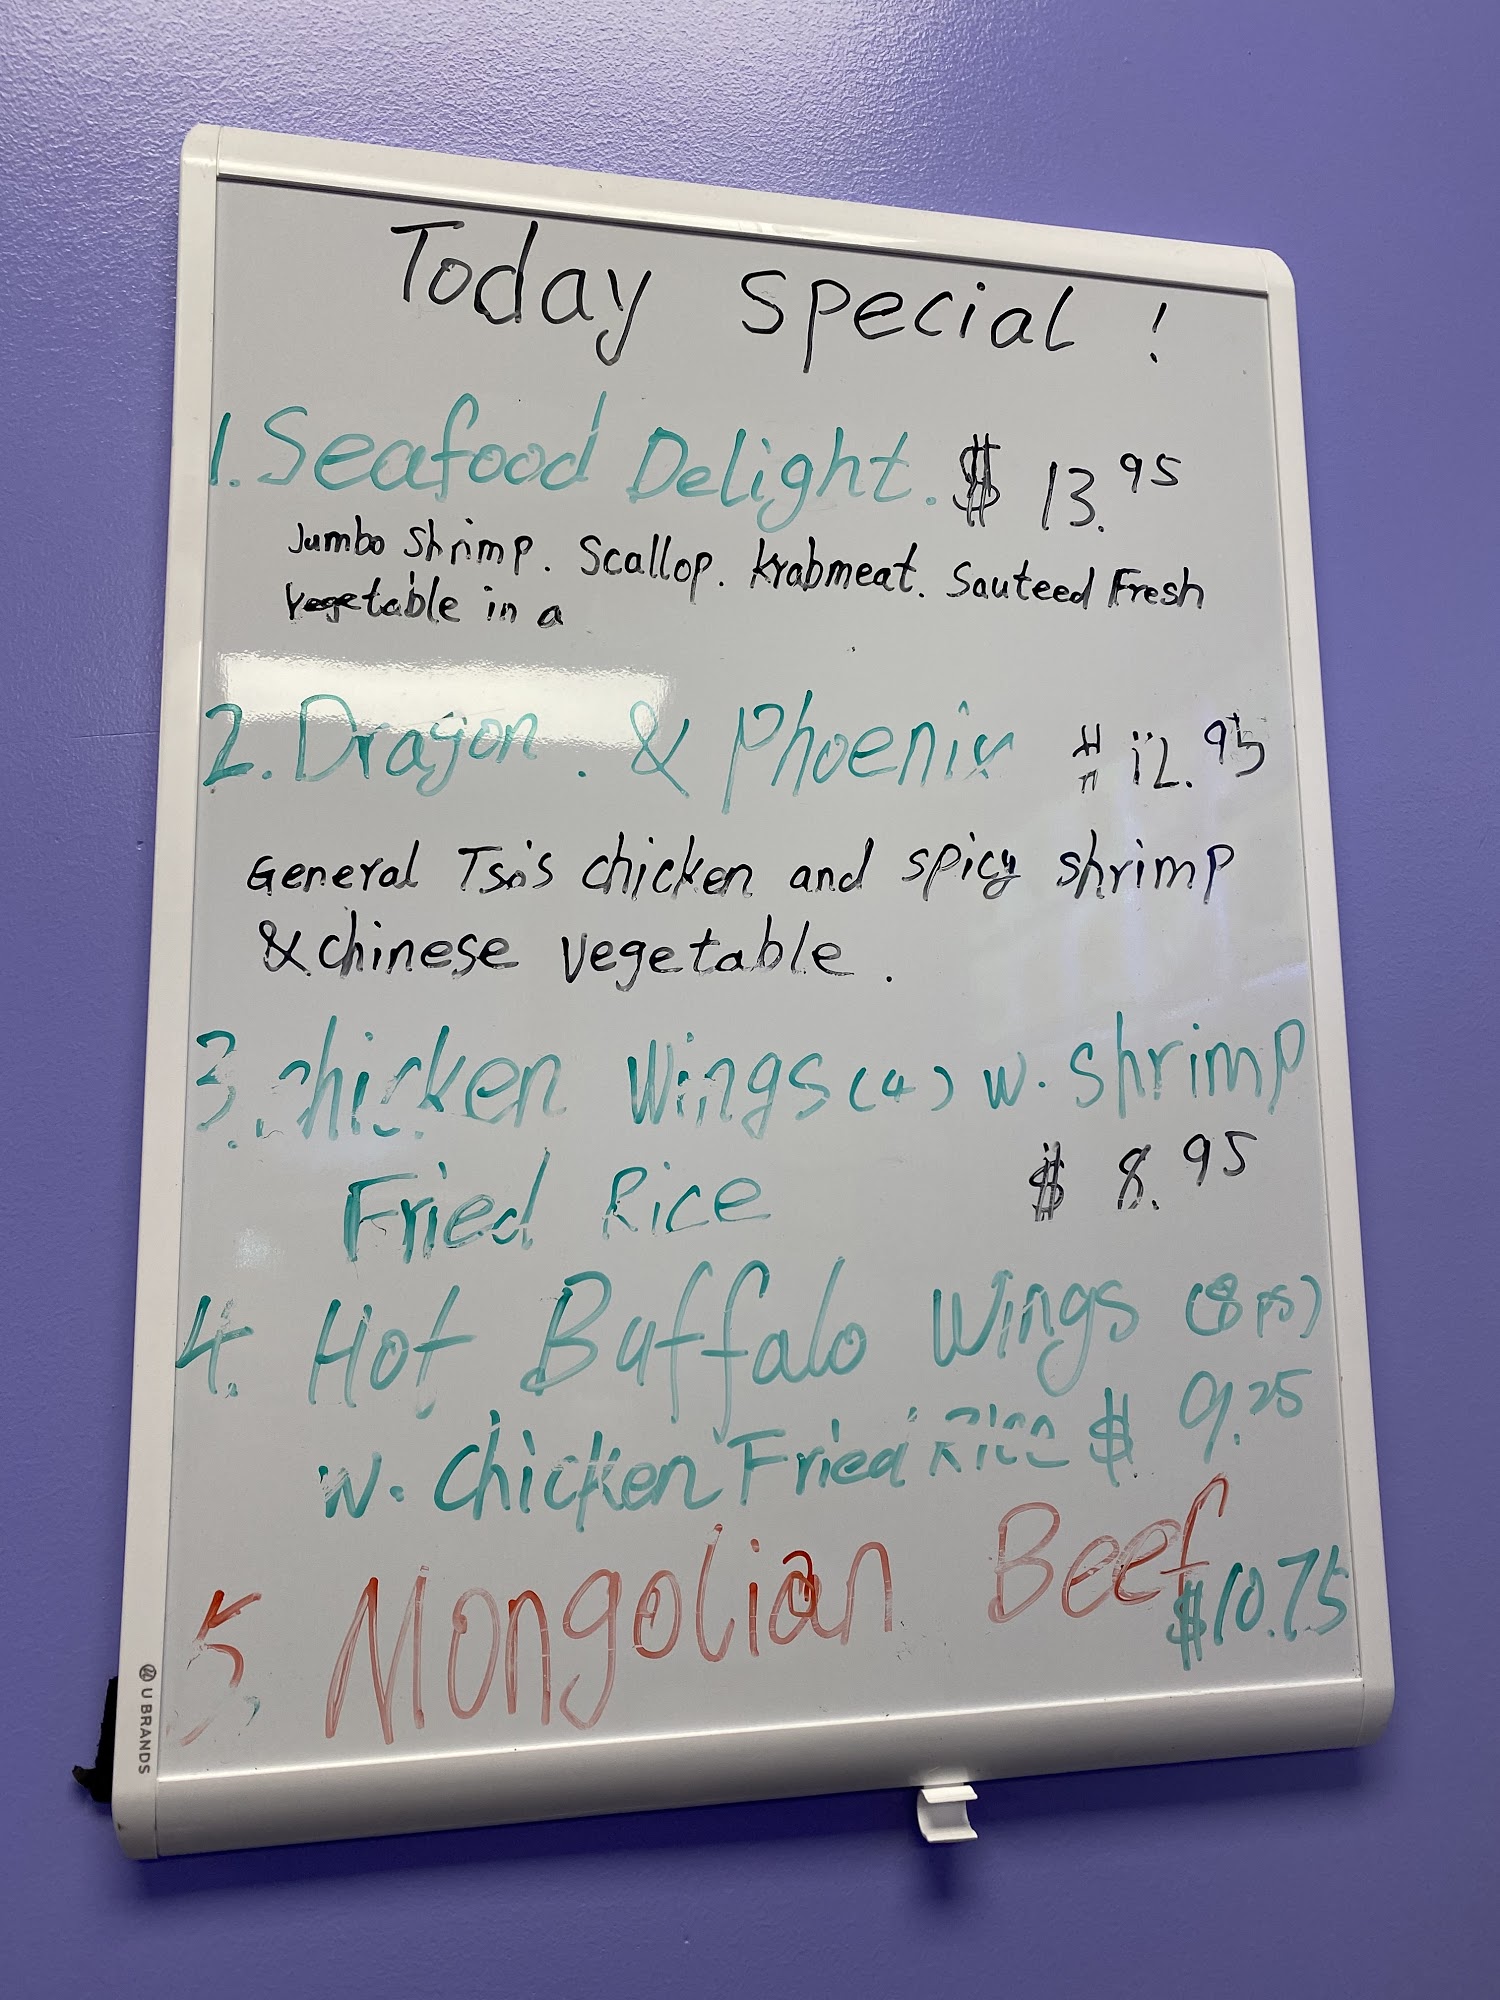 Today Special !
1. Seafood Delight. $ 13.95
Jumbo Shrimp. Scallop. Krabmeat. Sauteed Fresh
Vegetable in a
2. Dragon. & Phoenix $12.95
General Tso's chicken and spicy shrimp
& chinese vegetable.
3. chicken Wings (4) w. shrimp
Fried Rice $ 8.95
4. Hot Buffalo Wings (8 ps)
w. Chicken Fried Rice $ 9.25
5. Mongolian Beef
$10.75
U BRANDS